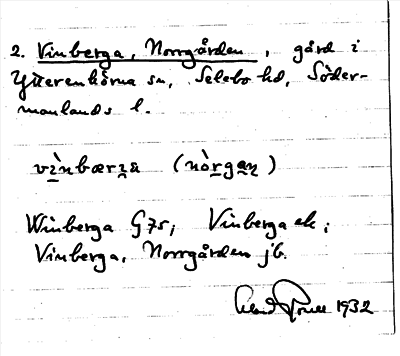 2. Vinberga, Norrgården, gård i
Ytterenhörna sn, Selebo hd, Söder-
manlands l.
vìnbærɪ̯a (nòrgaṇ)
Winberga G 75; Vinberga ek;
Vinberga, Norrgården jb.
1932